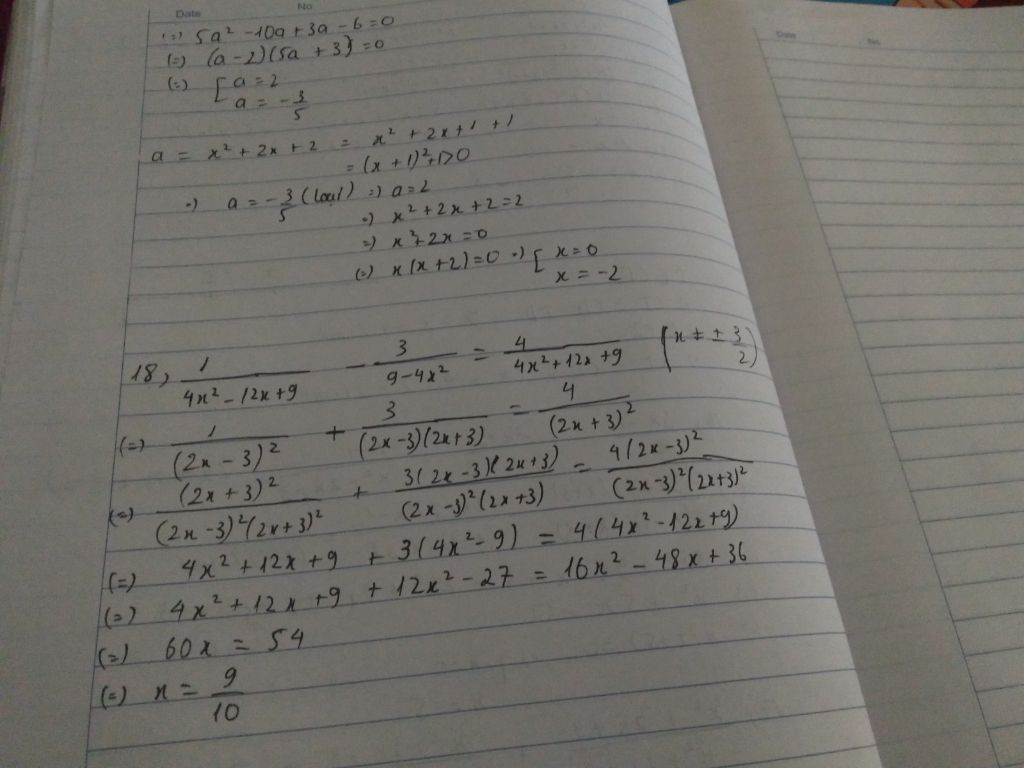 Date No
(=) 5a² - 10a + 3a - 6 = 0
(=) (a - 2)(5a + 3) = 0
(=) [ a = 2
a = -3/5
a = x² + 2x + 2 = x² + 2x + 1 + 1
= (x + 1)² + 1 > 0
=) a = -3/5 (loại) =) a = 2
=) x² + 2x + 2 = 2
=) x² + 2x = 0
(=) x(x + 2) = 0 =) [ x = 0
x = -2
18, 1/(4x² - 12x + 9) - 3/(9 - 4x²) = 4/(4x² + 12x + 9) (x ≠ ± 3/2)
(=) 1/(2x - 3)² + 3/((2x - 3)(2x + 3)) = 4/(2x + 3)²
(=) (2x + 3)²/((2x - 3)²(2x + 3)²) + 3(2x - 3)(2x + 3)/((2x - 3)²(2x + 3)) = 4(2x - 3)²/((2x - 3)²(2x + 3)²)
(=) 4x² + 12x + 9 + 3(4x² - 9) = 4(4x² - 12x + 9)
(=) 4x² + 12x + 9 + 12x² - 27 = 16x² - 48x + 36
(=) 60x = 54
(=) x = 9/10
Date No